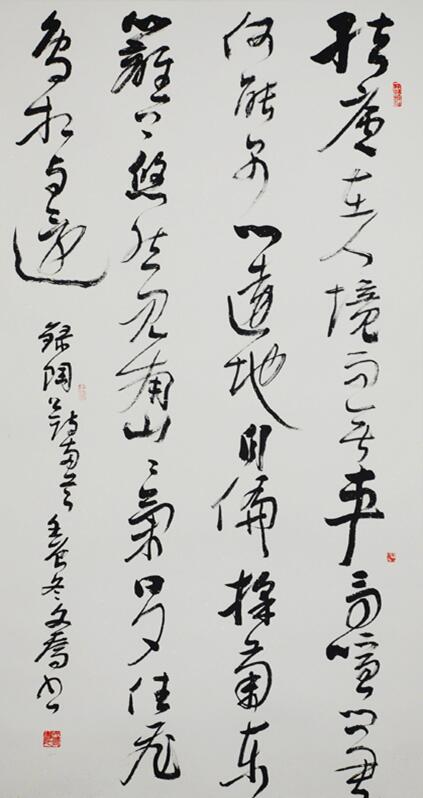 結廬在人境而无車馬喧問君
何能尔心遠地自偏採菊東
籬下悠然見南山々氣日夕佳飛
鳥相与還
錄陶公詩 壬辰冬文喬书